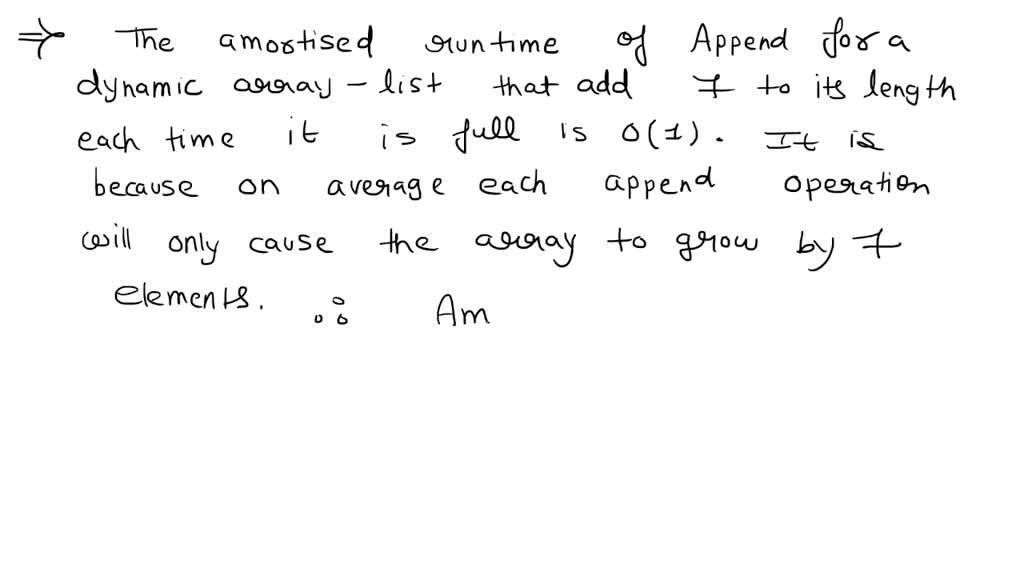 ⇒ The amortised runtime of Append for a
dynamic array - list that add 7 to its length
each time it is full is O(1). It is
because on average each append operation
will only cause the array to grow by 7
elements. ∴ Am